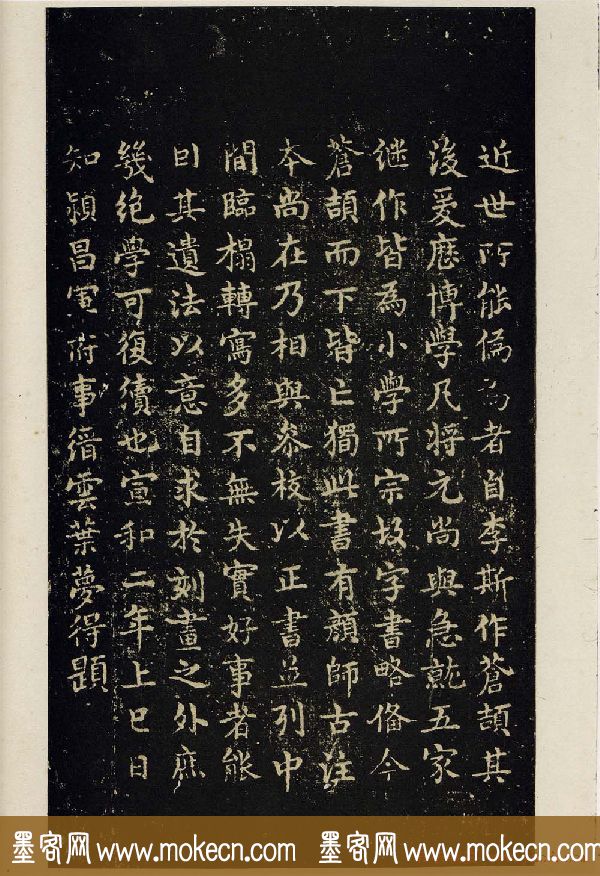 近世所能偽為者自李斯作蒼頡其
後爰歷博學凡將元尚與急就五家
继作皆為小學所宗故字書略僃今
蒼頡而下皆亡獨此書有顔師古注
本尚在乃相與叅校以正書並列中
間臨榻轉寫多不無失實好事者能
因其遺法以意自求於刻畫之外庶
幾絶學可復續也宣和二年上巳日
知潁昌軍府事縉雲葉夢得題
墨客网 www.mokecn.com 墨客网 www.mokecn.com